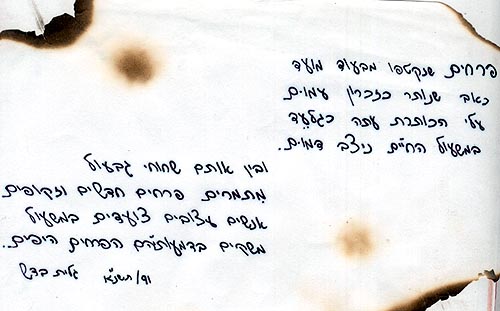 פרחים שנקטפו מבעוד מועד
כאב שנותר כזכרון עמום.
עלי הכותרת עתה כגלעד
במשעול החיים ניצב דמום.
ובין אותם שחוחי גבעול
מתמרים פרחים חדשים וזקופים
אנשים עצובים צועדים במשעול
משקים בדמעותיהם הפרחים היפים..
תשנ"א גלית